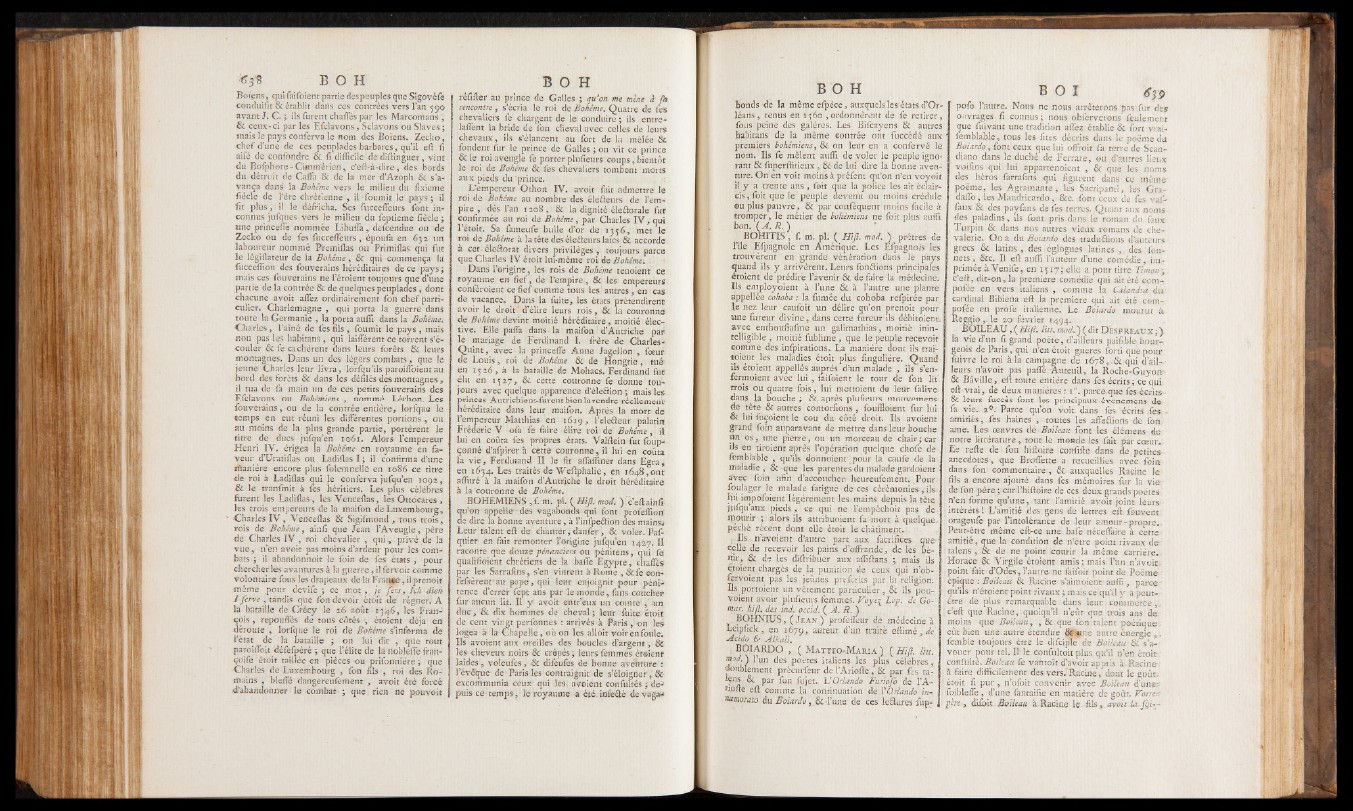 638 B O H
Boïens, qui faiſoient partie des peuples que Sigovèſe
conduiſit & établit dans ces contrées vers l'an 590
avant J. C. ; ils furent chaſſés par les Marcomans ;
& ceux-ci par les Eſclavons, Sclavons ou Slaves ;
mais le pays conſerva le nom des Boïens. Zecko,
chef d'une de ces peuplades barbares, qu'il eſt ſi
aiſé de confondre & ſi difficile de diſtinguer, vint
du Boſphore-Cimmérien, c'eſt-à-dire, des bords
du détroit de Caffa & de la mer d'Azoph & s'a-
vança dans la Bohême vers le milieu du ſixieme
ſiécle de l'ère chrétienne, il ſoumit le pays ; il
fit plus, il le défricha. Ses ſucceſſeurs ſont in-
connus juſques vers le milieu du ſeptieme ſiécle ;
une princeſſe nommée Libuſſa, deſcendue ou de
Zecko ou de ſes ſucceſſeurs, épouſa en 632 un
laboureur nommé Przmiſlas ou Primiſlas qui fut
le légiſlateur de la Bohême, & qui commença la
ſucceſſion des ſouverains héréditaires de ce pays ;
mais ces ſouverains ne l'étoient toujours que d'une
partie de la contrée & de quelques peuplades, dont
chacune avoit aſſez ordinairement ſon chef parti-
culier. Charlemagne, qui porta la guerre dans
toute la Germanie, la porta auſſi dans la Bohême.
Charles, l'aîné de ſes fils, ſoumit le pays, mais
non pas les habitans, qui laiſſèrent ce torrent s'é-
couler & ſe cachèrent dans leurs forêts & leurs
montagnes. Dans un des légers combats, que le
jeune Charles leur livra, lorſqu'ils paroiſſoient au
bord des forêts & dans les défilés des montagnes,
il tua de ſa main un de ces petits ſouverains des
Eſclavons ou Bohémiens, nommé Léchon. Les
ſouverains, ou de la contrée entière, lorſque le
temps en eut réuni les différentes portions, ou
au moins de la plus grande partie, portèrent le
titre de ducs juſqu'en 1061. Alors l'empereur
Henri IV. érigea la Bohême en royaume en fa-
veur d'Uratiſlas ou Ladiſlas I ; il confirma d'une
manière encore plus ſolennelle en 1086 ce titre
de roi à Ladiſlas qui le conſerva juſqu'en 1092,
& le tranſmit à ſes héritiers. Les plus célèbres
furent les Ladiſlas, les Venceſlas, les Ottocares,
les trois empereurs de la maiſon de Luxembourg,
Charles IV, Venceſlas & Sigiſmond, tous trois,
rois de Bohême, ainſi que Jean l'Aveugle, père
de Charles IV, roi chevalier, qui, privé de la
vue, n'en avoit pas moins d'ardeur pour les com-
bats ; il abandonnoit le ſoin de ſes états, pour
chercher les avantures à la guerre, il ſervoit comme
volontaire ſous les drapeaux de la France, il prenoit
même pour deviſe ; ce mot, je ſers, Ich dien
I ſerve, tandis que ſon devoir étoit de régner. A
la bataille de Crécy le 26 août 1346, les Fran-
çois, repouſſés de tous côtés, étoient déja en
déroute, lorſque le roi de Bohême s'informa de
l'état de la bataille ; on lui dit, que tout
paroiſſoit déſeſpéré ; que l'élite de la nobleſſe fran-
çoiſe étoit taillée en pièces ou priſonnière ; que
Charles de Luxembourg, ſon fils, roi des Ro-
mains, bleſſé dangereuſement, avoit été forcé
d'abandonner le combat ; que rien ne pouvoit
B O H
réſiſter au prince de Galles ; qu'on me mène à ſa
rencontre, s'écria le roi de Bohême. Quatre de ſes
chevaliers ſe chargent de le conduire ; ils entre-
laſſent la bride de ſon cheval avec celles de leurs
chevaux, ils s'élancent au fort de la mêlée &
fondent ſur le prince de Galles ; on vit ce prince
& le roi aveugle ſe porter pluſieurs coups, bientôt
le roi de Bohême & ſes chevaliers tombent morts
aux pieds du prince.
L'empereur Othon IV. avoit fait admettre le
roi de Bohême au nombre des électeurs de l'em-
pire, dès l'an 1208, & la dignité électorale fut
confirmée au roi de Bohême, par Charles IV, qui
l'étoit. Sa fameuſe bulle d'or de 1356, met le
roi de Bohême à la tête des électeurs laïcs & accorde
à cet électorat divers privilèges, toujours parce
que Charles IV étoit lui-même roi de Bohême.
Dans l'origine, les rois de Bohême tenoient ce
royaume en fief, de l'empire, & les empereurs
conféroient ce fief comme tous les autres, en cas
de vacance. Dans la ſuite, les états prétendirent
avoir le droit d'élire leurs rois, & la couronne
de Bohême devint moitié héréditaire, moitié élec-
tive. Elle paſſa dans la maiſon d'Autriche par
le mariage de Ferdinand I. frère de Charles-
Quint, avec la princeſſe Anne Jagellon, ſœur
de Louis, roi de Bohême & de Hongrie, tué
en 1526, à la bataille de Mohacs. Ferdinand fut
élu en 1527, & cette couronne ſe donne tou-
jours avec quelque apparence d'élection ; mais les
princes Autrichiens ſurent bien la rendre réellement
héréditaire dans leur maiſon. Après la mort de
l'empereur Matthias en 1619, l'électeur palatin
Fréderic V oſa ſe faire élire roi de Bohême, il
lui en coûta ſes propres états. Valſtein fut ſoup-
çonné d'aſpirer à cette couronne, il lui en coûta
la vie, Ferdinand II le fit aſſaſſiner dans Egra,
en 1634. Les traités de Weſtphalie, en 1648, ont
aſſuré à la maiſon d'Autriche le droit héréditaire
à la couronne de Bohême.
BOHEMIENS, ſ. m. pl. ( Hiſt. mod. ) c'eſt ainſi
qu'on appelle des vagabonds qui font profeſſion
de dire la bonne aventure, à l'inſpection des mains.
Leur talent eſt de chanter, danſer, & voler. Paſ-
quier en fait remonter l'origine juſqu'en 1427. Il
raconte que douze pénanciers ou pénitens, qui ſe
qualifioient chrétiens de la baſſe Egypte, chaſſés
par les Sarraſins, s'en vinrent à Rome, & ſe con-
feſſèrent au pape, qui leur enjoignit pour péni-
tence d'errer ſept ans par le monde, ſans coucher
ſur aucun lit. Il y avoit entr'eux un comte, un
duc, & dix hommes de cheval ; leur ſuite étoit
de cent vingt perſonnes : arrivés à Paris, on les
logea à la Chapelle, où on les alloit voir en foule.
Ils avoient aux oreilles des boucles d'argent, &
les cheveux noirs & crêpés ; leurs femmes étoient
laides, voleuſes, & diſeuſes de bonne aventure :
l'évêque de Paris les contraignit de s'éloigner, &
excommunia ceux qui les avoient conſultés ; de-
puis ce temps, le royaume a été infecté de vaga-
B O H
bonds de la même eſpèce, auxquels les états d'Or-
léans, tenus en 1560, ordonnèrent de ſe retirer,
ſous peine des galères. Les Biſcayens & autres
habitans de la même contrée ont ſuccédé aux
premiers bohémiens, & on leur en a conſervé le
nom. Ils ſe mêlent auſſi de voler le peuple igno-
rant & ſuperſtitieux, & de lui dire la bonne aven-
ture. On en voit moins à préſent qu'on n'en voyoit
il y a trente ans, ſoit que la police les ait éclair-
cis, ſoit que le peuple devenu ou moins crédule
ou plus pauvre, & par conſéquent moins facile à
tromper, le métier de bohémiens ne ſoit plus auſſi
bon. ( A. R. )
BOHITIS, ſ. m. pl. ( Hiſt. mod. ) prêtres de
l'île Eſpagnole en Amérique. Les Eſpagnols les
trouvèrent en grande vénération dans le pays
quand ils y arrivèrent. Leurs fonctions principales
étoient de prédire l'avenir & de faire la médecine.
Ils employoient à l'une & à l'autre une plante
appellée cohoba : la fumée du cohoba reſpirée par
le nez leur cauſoit un délire qu'on prenoit pour
une fureur divine ; dans cette fureur ils débitoient
avec enthouſiaſme un galimathias, moitié inin-
telligible, moitié ſublime, que le peuple recevoit
comme des inſpirations. La manière dont ils trai-
toient les maladies étoit plus ſingulière. Quand
ils étoient appellés auprès d'un malade, ils s'en-
fermoient avec lui, faiſoient le tour de ſon lit
trois ou quatre fois, lui mettoient de leur ſalive
dans la bouche ; & après pluſieurs mouvemens
de tête & autres contorſions, ſouffloient ſur lui
& lui ſuçoient le cou du côté droit. Ils avoient
grand ſoin auparavant de mettre dans leur bouche
un os, une pierre, ou un morceau de chair ; car
ils en tiroient après l'opération quelque choſe de
ſemblable, qu'ils donnoient pour la cauſe de la
maladie, & que les parentes du malade gardoient
avec ſoin afin d'accoucher heureuſement. Pour
ſoulager le malade fatigué de ces cérémonies, ils
lui impoſoient légèrement les mains depuis la tête
juſqu'aux pieds, ce qui ne l'empêchoit pas de
mourir ; alors ils attribuoient ſa mort à quelque
péché récent dont elle étoit le châtiment.
Ils n'avoient d'autre part aux ſacrifices que
celle de recevoir les pains d'offrande, de les bé-
nir, & de les diſtribuer aux aſſiſtans ; mais ils
étoient chargés de la punition de ceux qui n'ob-
ſervoient pas les jeûnes preſcrits par la religion.
Ils portoient un vêtement particulier, & ils pou-
voient avoir pluſieurs femmes. Voyez Lop. de Go-
mar. hiſt. des ind. occid. ( A. R. )
BOHNIUS, ( JEAN ) profeſſeur de médecine à
Leipſick, en 1679, auteur d'un traité eſtimé, de
Acido & Alkali.
BOIARDO, ( MATTEO-MARIA ) ( Hiſt. litt.
mod. ) l'un des poëtes italiens les plus célèbres,
doublement précurſeur de l'Arioſte, & par ſes ta-
lens & par ſon ſujet. L'Orlando Furioſo de l'A-
rioſte eſt comme la continuation de l'Orlando in-
namorato du Boiardo, & l'une de ces lectures ſup-
B O I 639
poſe l'autre. Nous ne nous arrêterons pas ſur des
ouvrages ſi connus ; nous obſerverons ſeulement
que ſuivant une tradition aſſez établie & fort vrai-
ſemblable, tous les ſites décrits dans le poëme du
Boiardo, ſont ceux que lui offroit ſa terre de Scan-
diano dans le duché de Ferrare, ou d'autres lieux
voiſins qui lui appartenoient, & que les noms
des héros ſarraſins qui figurent dans ce même
poëme, les Agramante, les Sacripanti, les Gra-
daſſo, les Mandricardo, &c. ſont ceux de ſes vaſ-
ſaux & des payſans de ſes terres. Quant aux noms
des paladins, ils ſont pris dans le roman du faux
Turpin & dans nos autres vieux romans de che-
valerie. On a du Boiardo des traductions d'auteurs
grecs & latins, des églogues latines, des ſon-
nets, &c. Il eſt auſſi l'auteur d'une comédie, im-
primée à Veniſe, en 1517 ; elle a pour titre Timon ;
c'eſt, dit-on, la première comédie qui ait été com-
poſée en vers italiens, comme la Calandra du
cardinal Bibiena eſt la premiere qui ait été com-
poſée en proſe italienne. Le Boiardo mourut à
Reggio, le 20 février 1494.
BOILEAU, ( Hiſt. litt. mod. ) ( dit DESPREAUX ; )
la vie d'un ſi grand poëte, d'ailleurs paiſible bour-
geois de Paris, qui n'en étoit guères ſorti que pour
ſuivre le roi à la campagne de 1678, & qui d'ail-
leurs n'avoit pas paſſé Auteuil, la Roche-Guyon
& Bâville, eſt toute entière dans ſes écrits ; ce qui
eſt vrai, de deux manières : 1°. parce que ſes écrits
& leurs ſuccès ſont les principaux événemens de
ſa vie. 2°. Parce qu'on voit dans ſes écrits ſes
amitiés, ſes haines, toutes les affections de ſon
ame. Les œuvres de Boileau ſont les élémens de
notre littérature, tout le monde les ſait par cœur.
Le reſte de ſon hiſtoire conſiſte dans de petites
anecdotes, que Broſſette a recueillies avec ſoin
dans ſon commentaire, & auxquelles Racine le
fils a encore ajouté dans ſes mémoires ſur la vie
de ſon père ; car l'hiſtoire de ces deux grands poëtes
n'en forme qu'une, tant l'amitié avoit joint leurs
intérêts ! L'amitié des gens de lettres eſt ſouvent
orageuſe par l'intolérance de leur amour-propre.
Peut-être même eſt-ce une baſe néceſſaire à cette
amitié, que la condition de n'être point rivaux de
talens, & de ne point courir la même carrière.
Horace & Virgile étoient amis ; mais l'un n'avoit
point fait d'Odes, l'autre ne faiſoit point de Poëme
épique : Boileau & Racine s'aimoient auſſi, parce
qu'ils n'étoient point rivaux ; mais ce qu'il y a peut-
être de plus remarquable dans leur commerce,
c'eſt que Racine, quoiqu'il n'eût que trois ans de
moins que Boileau, & que ſon talent poétique
eût bien une autre étendue & une autre énergie,
ſemble toujours être le diſciple de Boileau & s'a-
vouer pour tel. Il le conſultoit plus qu'il n'en étoit
conſulté. Boileau ſe vantoit d'avoir appris à Racine
à faire difficilement des vers. Racine, dont le goût
étoit ſi pur, n'oſoit convenir avec Boileau d'une
foibleſſe, d'une fantaiſie en matière de goût. Votre
père, diſoit Boileau à Racine le fils, avoit la foi-